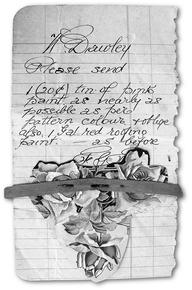 Please send
1 (20¢) tin of pink
paint as nearly as
possible as per
pattern colour
also, 1 gal red roofing
paint. — as before